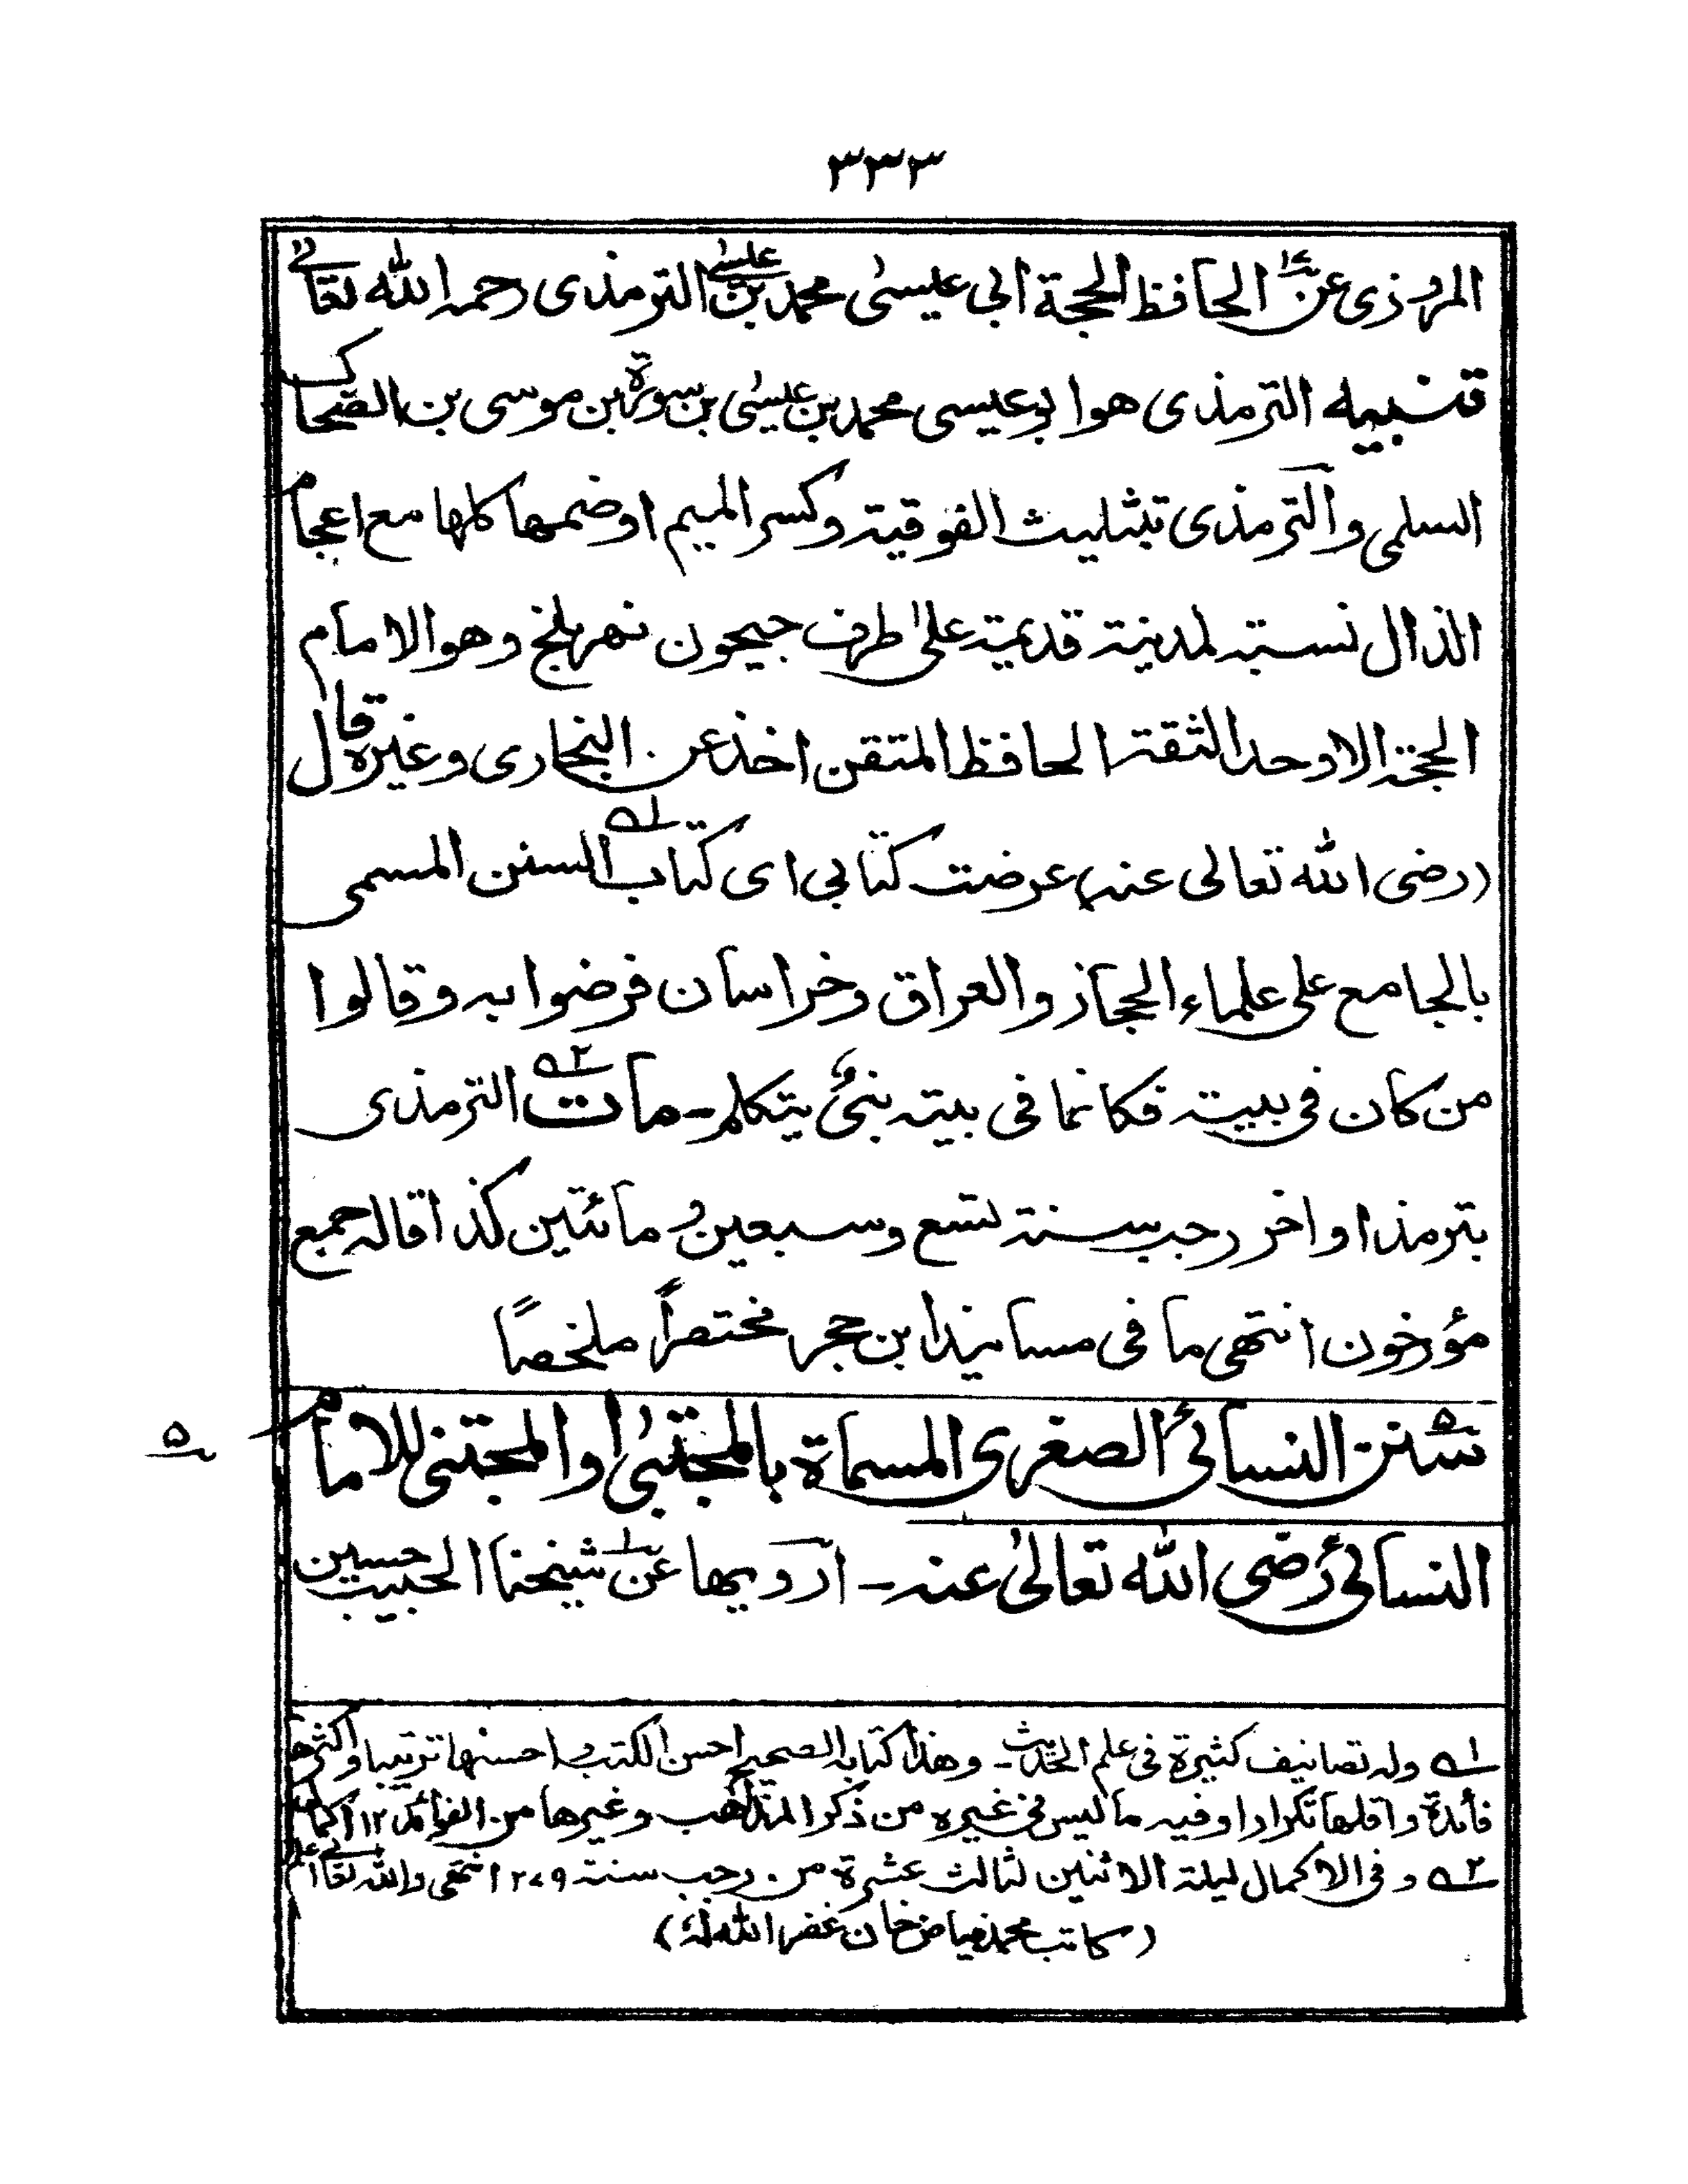 ٣٣٣
المروزی عن الحافظ الحجة ابی عیسیٰ محمد بن عیسیٰ الترمذی رحمہ اللہ تعالےٰ
تنبیه الترمذی هو ابو عیسی محمد بن عیسیٰ بن سورة بن موسی بن الضحاک
السلمی والترمذی بتثلیث الفوقیة وکسر المیم او ضمها کلها مع اعجام
الذال نسبة لمدینة قدیمة علیٰ طرف جیحون نهر بلخ وهو الامام
الحجة الاوحد الثقة الحافظ المتقن اخذ عن البخاری وغیره قال
(رضی اللہ تعالی عنه) عرضت کتابی ای کتاب ۱ السنن المسمی
بالجامع علی علماء الحجاز والعراق وخراسان فرضوا به وقالوا
من کان فی بیته فکانما فی بیته نبیٌ یتکلم - مات ۲ الترمذی
بترمذ اواخر رجب سنة تسع وسبعین ومائتین کذا قاله جمع
مؤرخون انتهی ما فی مسانید ابن حجر مختصراً ملخصاً
۵ سنن النسائی الصغری المسماة بالمجتبیٰ او المجتنی للامام
النسائی رضی اللہ تعالیٰ عنه - ارویها عن شیخنا الحبیب حسین
۱ وله تصانیف کثیرة فی علم الحدیث - وهذا کتابه الصحیح احسن الکتب و احسنها ترتیبا واکثرها
فائدة واقلها تکرارا وفیه ما لیس فی غیره من ذکر المذاهب وغیرها من الفوائد ۱۲ اکمال
۲ وفی الاکمال لیلة الاثنین لثالث عشرة من رجب سنة ۲۷۹ انتهی واللہ تعالےٰ اعلم
(کاتب محمد فیاض خان غفر اللہ لهٗ)